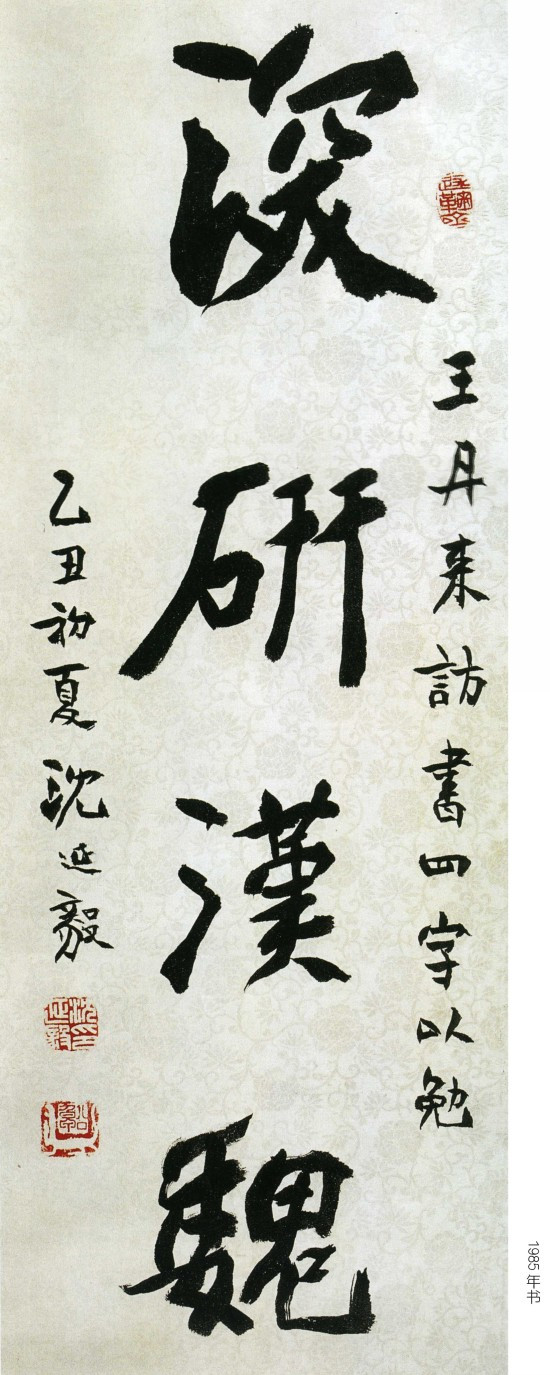 王丹来訪書四字以勉
深研漢魏
乙丑初夏沈延毅
沈延毅印
1985年书